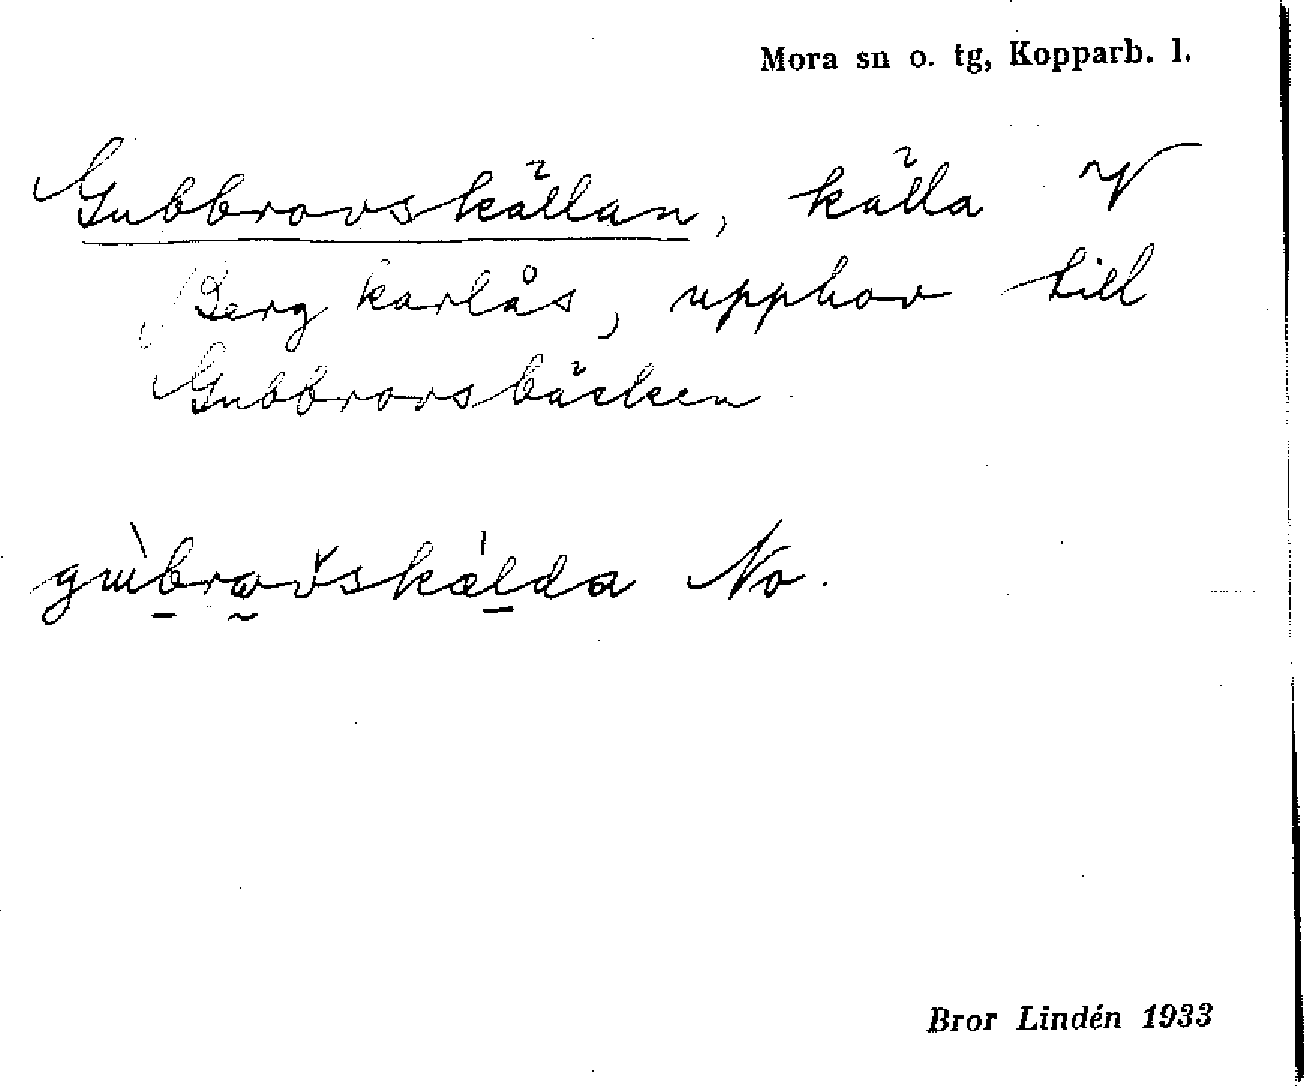 Mora sn o. tg, Kopparb. l.
Gubbrovskällan, källa V
Bergkarlås, upphov till
Gubbrovsbäcken
No.
Bror Lindén 1933